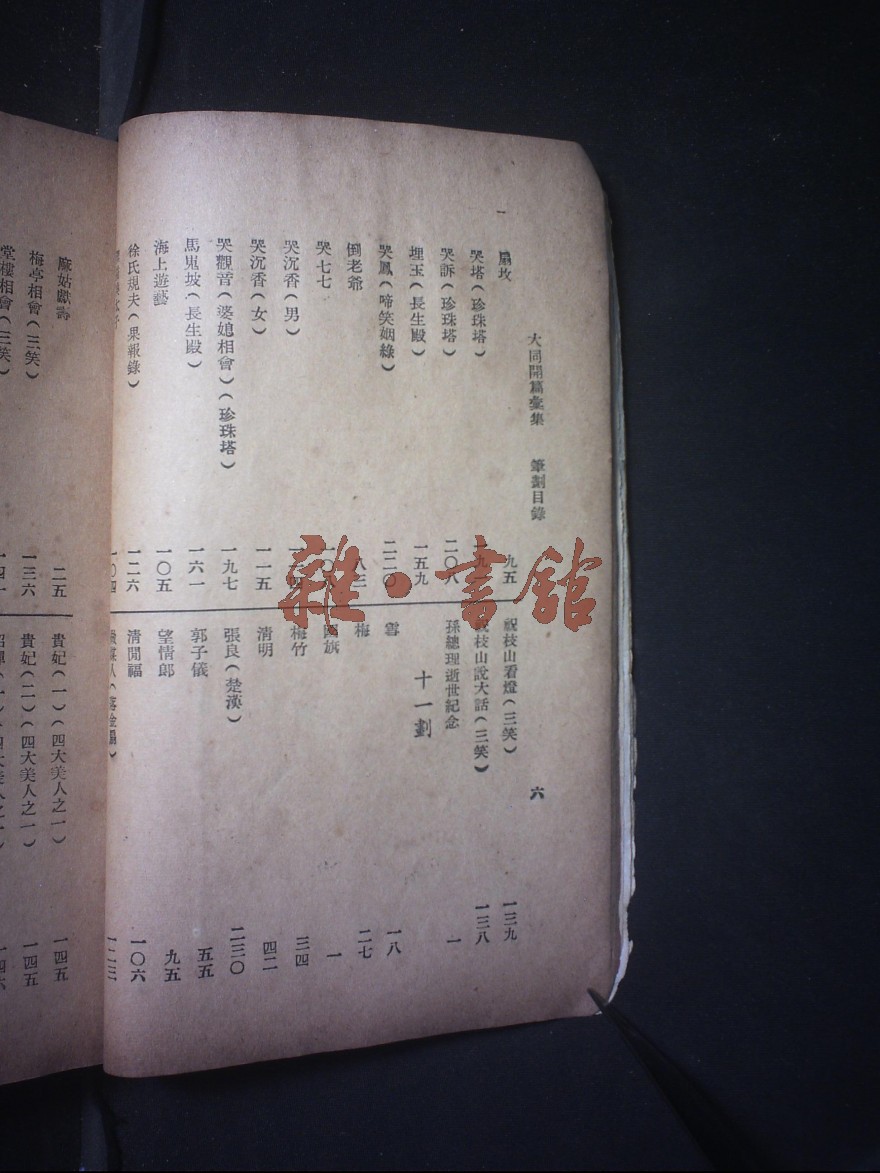 大同開篇彙集 筆劃目錄 六
扇坟 九五
哭塔(珍珠塔)
哭訴(珍珠塔) 二〇八
埋玉(長生殿) 一五九
哭鳳(啼笑姻緣) 二二〇
倒老爺 八三
哭七七
哭沉香(男)
哭沉香(女) 一一五
哭觀音(婆媳相會)(珍珠塔) 一九七
馬嵬坡(長生殿) 一六一
海上遊藝 一〇五
徐氏規夫(果報錄) 一二六
一〇四
祝枝山看燈(三笑) 一三九
祝枝山說大話(三笑) 一三八
孫總理逝世紀念 一
十一劃
雪 一八
梅 二七
國旗 一
梅竹 三四
清明 四二
張良(楚漢) 二三〇
郭子儀 五五
望情郎 九五
清閒福 一〇六
媒人(落金扇) 一二三
麻姑獻壽 二五
梅亭相會(三笑) 一三六
堂樓相會(三笑) 一四一
貴妃(一)(四大美人之一) 一四五
貴妃(二)(四大美人之一) 一四五
雜·書館